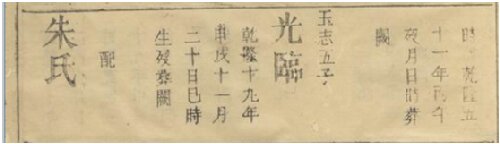 時乾隆五
十一年丙午
月日時葬
闕
玉志五子
光臨
乾隆十九年
甲戌十一月
二十日巳時
生歿葬闕
配
朱氏